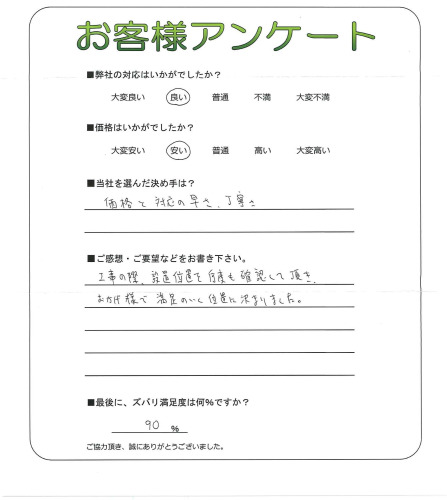 お客様アンケート
■弊社の対応はいかがでしたか?
大変良い 良い 普通 不満 大変不満
■価格はいかがでしたか?
大変安い 安い 普通 高い 大変高い
■当社を選んだ決め手は?
価格と対応の早さ、丁寧さ
■ご感想・ご要望などをお書き下さい。
工事の際、設置位置を何度も確認して頂き、
おかげ様で満足のいく位置に決まりました。
■最後に、ズバリ満足度は何%ですか?
90 %
ご協力頂き、誠にありがとうございました。